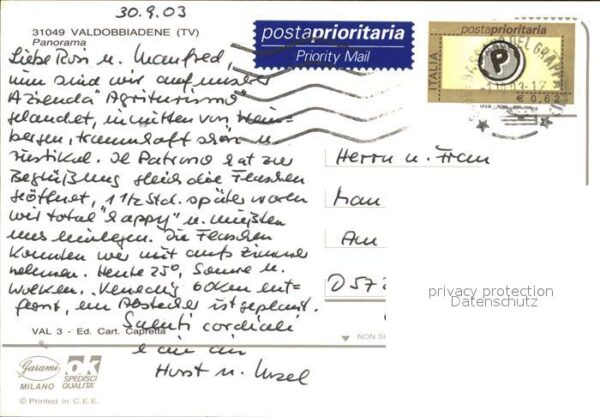 30.9.03
31049 VALDOBBIADENE (TV)
Panorama
postaprioritaria
Priority Mail
postaprioritaria
ITALIA
P
€ 0,62
Liebe Rosi u. Manfred,
nun sind wir auf unserer
Azienda "Agriturismo"
gelandet, inmitten von Wein-
bergen, traumhaft schön u.
rustikal. Il Patrono hat zur
Begrüßung gleich die Flaschen
geöffnet, 1 1/2 Std. später waren
wir total "happy" u. mußten
uns hinlegen. Die Flaschen
konnten wir mit aufs Zimmer
nehmen. Heute 25°, Sonne u.
Wolken. Venedig 60km ent-
fernt, ein Abstecher ist geplant.
Saluti cordiali
e ciao ciao
Horst u. Ursel
Herrn u. Frau
Man
Am
D 572
privacy protection
Datenschutz
VAL 3 - Ed. Cart. Capretta
NON S
Garami
MILANO
OK
SPEDISCI
QUALITA'
© Printed in C.E.E.